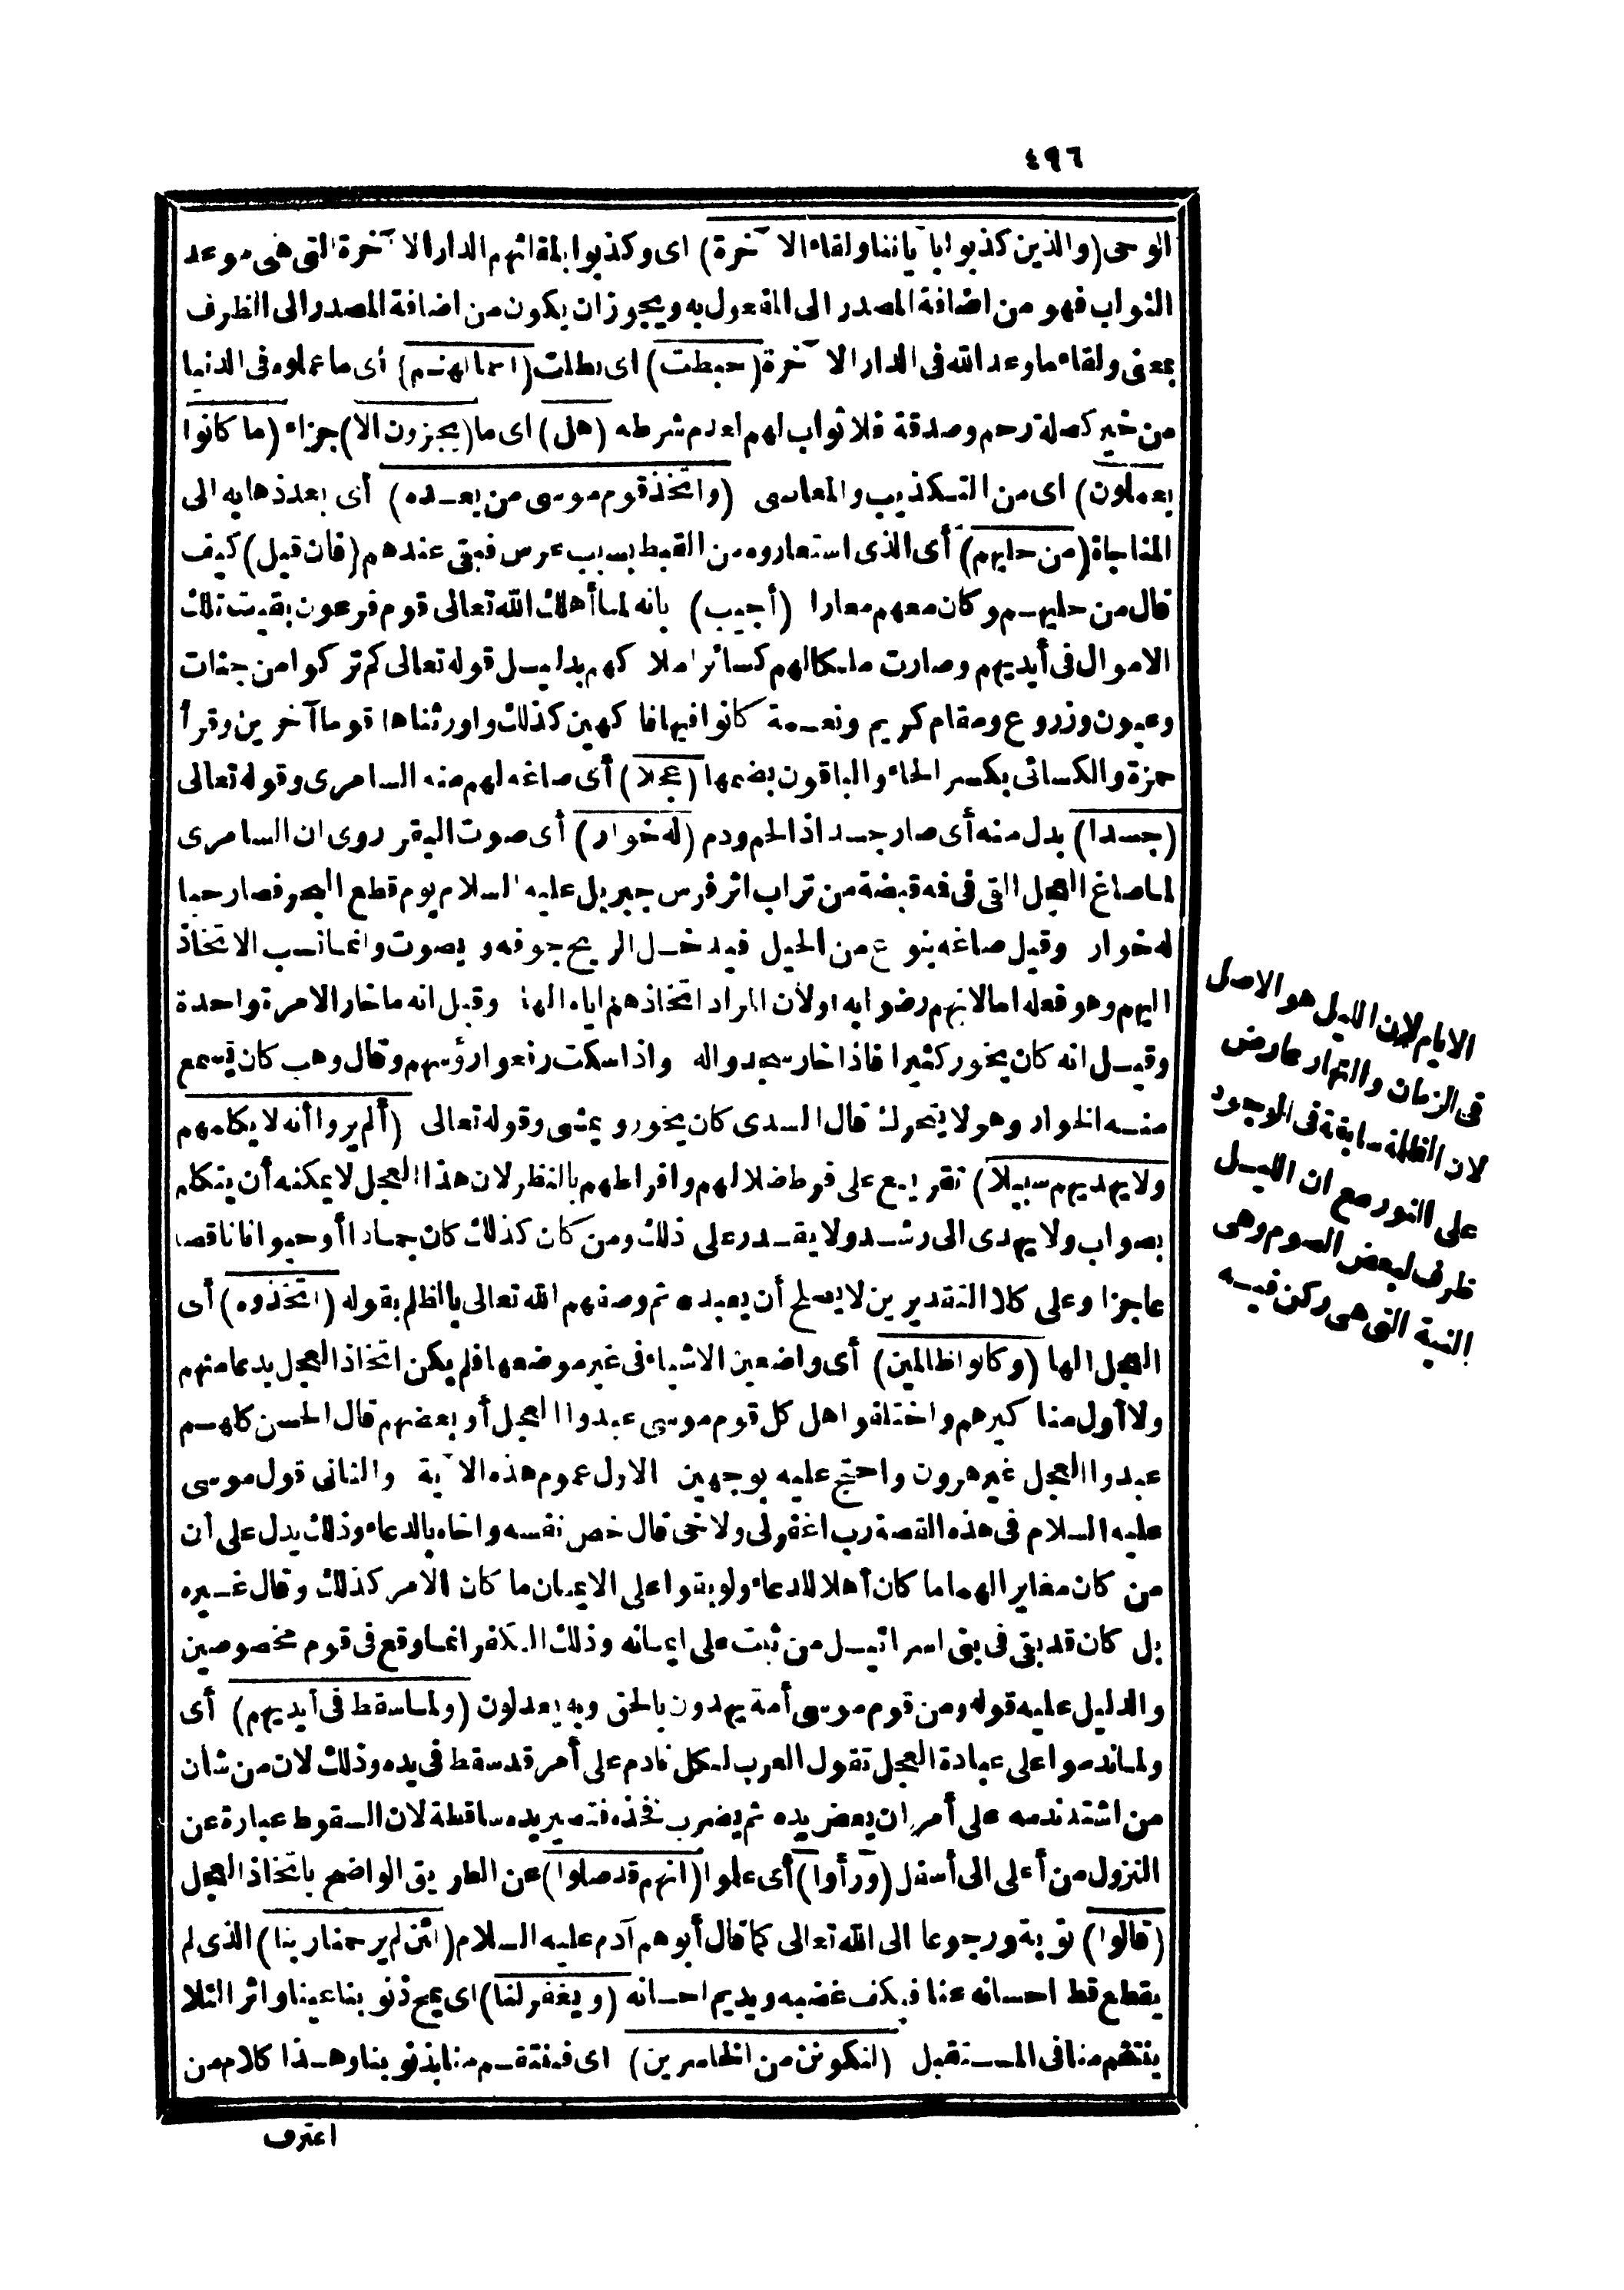 ٤٩٦
الوحى (والذين كذبوا بآياتنا ولقاء الآخرة) اى وكذبوا بلقائهم الدار الآخرة التى هى موعد
الثواب فهو من اضافة المصدر الى المفعول به ويجوز ان يكون من اضافة المصدر الى الظرف
بمعنى ولقاء ما وعد الله فى الدار الآخرة (حبطت) اى بطلت (اعمالهم) أى ما عملوه فى الدنيا
من خير كصلة رحم وصدقة فلا ثواب لهم لعدم شرطه (هل) اى ما (يجزون الا) جزاء (ما كانوا
يعملون) اى من التكذيب والمعاصى (واتخذ قوم موسى من بعده) أى بعد ذهابه الى
المناجاة (من حليهم) أى الذى استعاروه من القبط بسبب عرس فبقى عندهم (فان قيل) كيف
قال من حليهم وكان معهم معارا (أجيب) بانه لما أهلك الله تعالى قوم فرعون بقيت تلك
الاموال فى أيديهم وصارت ملكا لهم كسائر املاكهم بدليل قوله تعالى كم تركوا من جنات
وعيون وزروع ومقام كريم ونعمة كانوا فيها فاكهين كذلك واورثناها قوما آخرين وقرأ
حمزة والكسائى بكسر الحاء والباقون بضمها (عجلا) أى صاغه لهم منه السامرى وقوله تعالى
(جسدا) بدل منه أى صار جسدا ذا لحم ودم (له خوار) أى صوت البقر روى ان السامرى
لما صاغ العجل القى فى فه قبضة من تراب اثر فرس جبريل عليه السلام يوم قطع البحر فصار حيا
له خوار وقيل صاغه بنوع من الحيل فيدخل الريح جوفه ويصوت وانما نسب الاتخاذ
اليهم وهو فعله اما لانهم رضوا به او لأن المراد اتخاذهم اياه الها وقيل انه ما خار الا مرة واحدة
وقيل انه كان يخور كثيرا فاذا خار سجدوا له واذا سكت رفعوا رؤسهم وقال وهب كان يسمع
منه الخوار وهو لا يتحرك قال السدى كان يخور ويمشى وقوله تعالى (ألم يروا أنه لا يكلمهم
ولا يهديهم سبيلا) تقريع على فرط ضلالهم وافراطهم بالنظر لان هذا العجل لا يمكنه أن يتكلم
بصواب ولا يهدى الى رشد ولا يقدر على ذلك ومن كان كذلك كان جمادا أو حيوانا ناقصا
عاجزا وعلى كلا التقديرين لا يصلح أن يعبد ه ثم وصفهم الله تعالى بالظلم بقوله (اتخذوه) أى
العجل الها (وكانوا ظالمين) أى واضعين الاشياء فى غير موضعها فلم يكن اتخاذ العجل بدعا منهم
ولا أول مناكيرهم واختلفوا هل كل قوم موسى عبدوا العجل أو بعضهم قال الحسن كلهم
عبدوا العجل غير هرون واحتج عليه بوجهين الاول عموم هذه الآية والثانى قول موسى
عليه السلام فى هذه القصة رب اغفر لى ولاخى قال خص نفسه واخاه بالدعاء وذلك يدل على أن
من كان مغايرا لهما ما كان أهلا للدعاء ولو بقوا على الايمان ما كان الامر كذلك وقال غيره
بل كان قد بقى فى بنى اسرائيل من ثبت على ايمانه وذلك الكفر انما وقع فى قوم مخصوصين
والدليل عليه قوله ومن قوم موسى أمة يهدون بالحق وبه يعدلون (ولما سقط فى أيديهم) أى
ولما ندموا على عبادة العجل تقول العرب لكل نادم على أمر قد سقط فى يده وذلك لان من شأن
من اشتد ندمه على أمر ان يعض يده ثم يضرب فخذه فتصير يده ساقطة لان السقوط عبارة عن
النزول من أعلى الى أسفل (ورأوا) أى علموا (انهم قد ضلوا) عن الطريق الواضح باتخاذ العجل
(قالوا) توبة ورجوعا الى الله تعالى كما قال أبوهم آدم عليه السلام (لئن لم يرحمنا ربنا) الذى لم
يقطع قط احسانه عنا فيكف غضبه ويديم احسانه (ويغفر لنا) اى يمح ذنوبنا عينا واثرا لئلا
ينتقم منا فى المستقبل (لنكونن من الخاسرين) اى فينتقم منا بذنوبنا وهذا كلام من
اعترف
الايام لان الليل هو الاصل
فى الزمان والنهار عارض
لان الظلمة سابقة فى الوجود
على النور مع ان الليل
ظرف لبعض الصوم وهى
النية التى هى ركن فيه